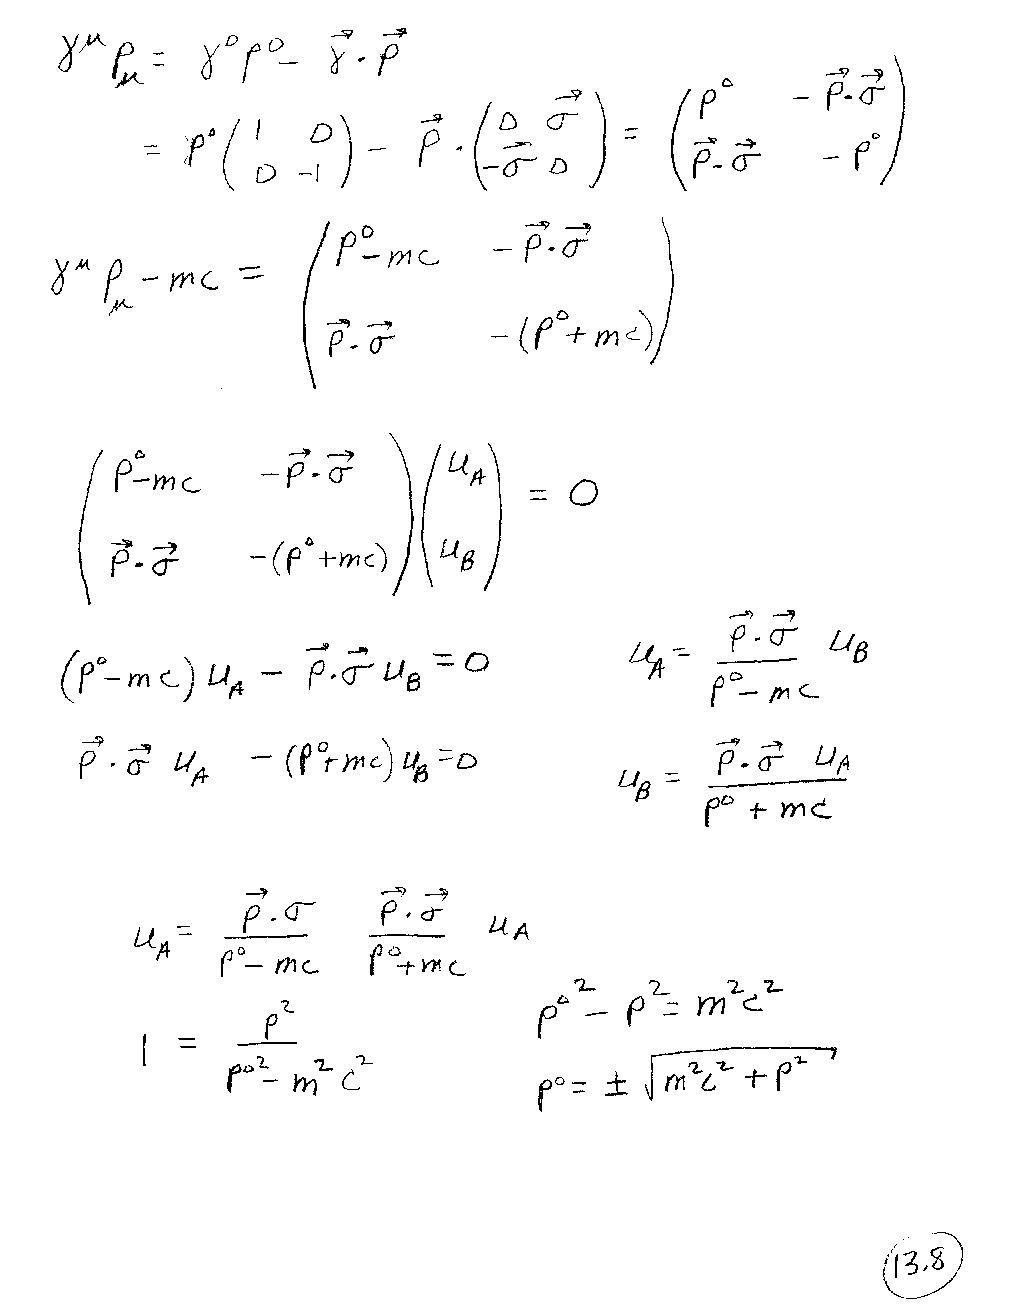 γ^μ p_μ = γ⁰p⁰ - γ⃗·p⃗
= p⁰ (1 0; 0 -1) - p⃗·(0 σ⃗; -σ⃗ 0) = (p⁰ -p⃗·σ⃗; p⃗·σ⃗ -p⁰)
γ^μ p_μ - mc = (p⁰-mc -p⃗·σ⃗; p⃗·σ⃗ -(p⁰+mc))
(p⁰-mc -p⃗·σ⃗; p⃗·σ⃗ -(p⁰+mc)) (u_A; u_B) = 0
(p⁰-mc) u_A - p⃗·σ⃗ u_B = 0
u_A = p⃗·σ⃗/(p⁰-mc) u_B
p⃗·σ⃗ u_A - (p⁰+mc) u_B = 0
u_B = p⃗·σ⃗ u_A/(p⁰+mc)
u_A = p⃗·σ/(p⁰-mc) p⃗·σ⃗/(p⁰+mc) u_A
1 = p²/(p⁰² - m²c²)
p⁰² - p² = m²c²
p⁰ = ± √(m²c² + p²)
13.8